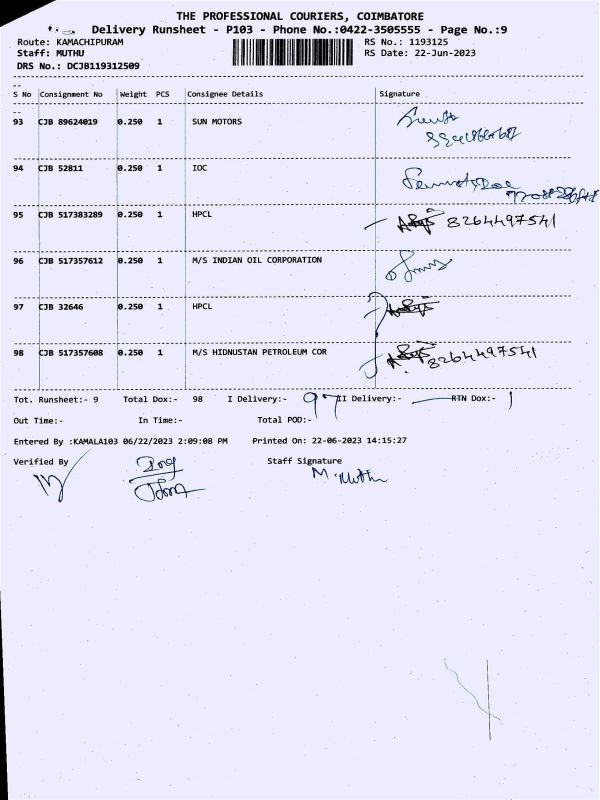 THE PROFESSIONAL COURIERS, COIMBATORE
Delivery Runsheet - P103 - Phone No.:0422-3505555 - Page No.:9
Route: KAMACHIPURAM RS No.: 1193125
Staff: MUTHU RS Date: 22-Jun-2023
DRS No.: DCJB119312509
S No Consignment No Weight PCS Consignee Details Signature
93 CJB 89624019 0.250 1 SUN MOTORS
94 CJB 52811 0.250 1 IOC
95 CJB 517383289 0.250 1 HPCL 8264497541
96 CJB 517357612 0.250 1 M/S INDIAN OIL CORPORATION
97 CJB 32646 0.250 1 HPCL
98 CJB 517357608 0.250 1 M/S HIDNUSTAN PETROLEUM COR 8264497541
Tot. Runsheet:- 9 Total Dox:- 98 I Delivery:- 97 II Delivery:- RTN Dox:- 1
Out Time:- In Time:- Total POD:-
Entered By :KAMALA103 06/22/2023 2:09:08 PM Printed On: 22-06-2023 14:15:27
Verified By Staff Signature
M. Muthu